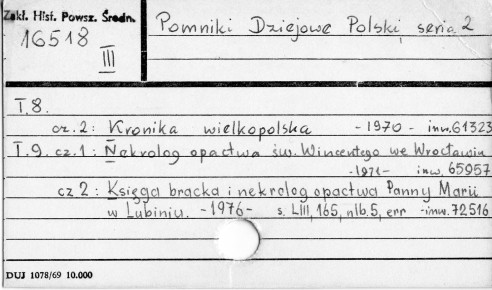 Zakł. Hist. Powsz. Średn.
16518
III
Pomniki Dziejowe Polski, seria 2
T.8.
cz. 2: Kronika wielkopolska -1970- inw. 61323
T.9. cz.1: Nekrolog opactwa św. Wincentego we Wrocławiu
-1971- inw. 65957
cz 2: Księga bracka i nekrolog opactwa Panny Marii
w Lubiniu. -1976- s. LIII, 165, nlb. 5, err -inw. 72516
DUJ 1078/69 10.000